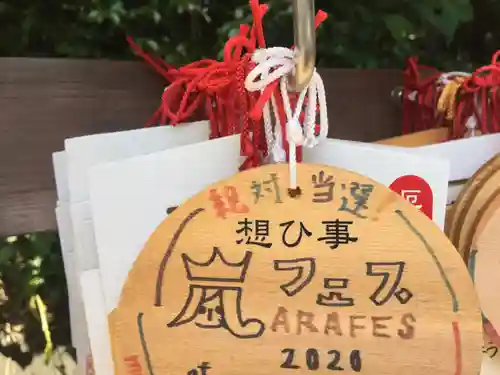 絶対当選
想ひ事
嵐フェス
ARAFES
2020
at
厄